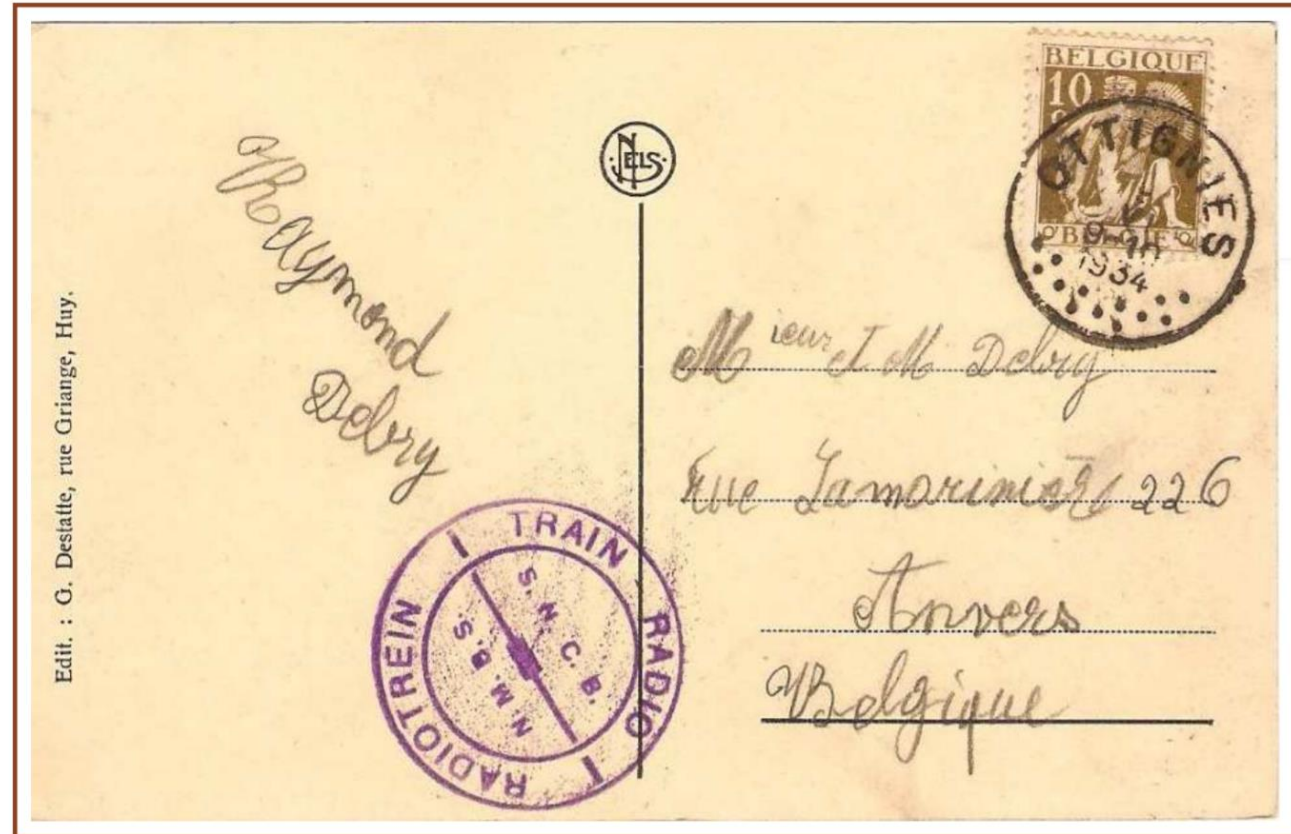 Edit. : G. Destatte, rue Griange, Huy.
Raymond
Debry
NELS
BELGIQUE
10
BELGIË
OTTIGNIES
9-10
1934
Mieur J M Debry
rue Lamorinière 226
Anvers
Belgique
TRAIN RADIO
RADIOTREIN
S. N. C. B.
N. M. B. S.